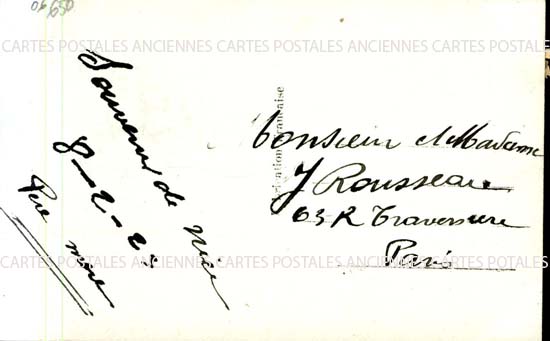 06 650
CARTES POSTALES ANCIENNES CARTES POSTALES ANCIENNES CARTES POSTALES
Souvenir de Nice
8-2-23
Père mère
Monsieur et Madame
J Rousseau
63 R Traversière
Paris
CARTES POSTALES ANCIENNES CARTES POSTALES ANCIENNES CARTES POSTALES